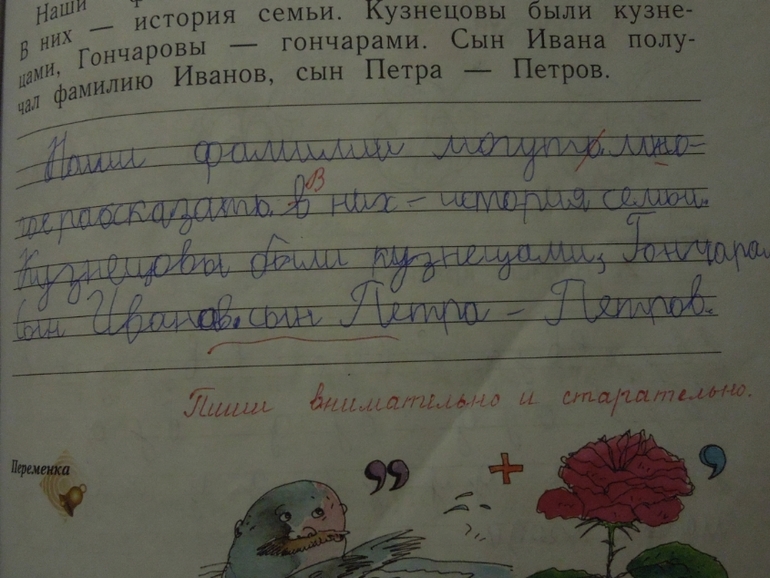 Наши
В них — история семьи. Кузнецовы были кузне-
цами, Гончаровы — гончарами. Сын Ивана полу-
чал фамилию Иванов, сын Петра — Петров.
Наши фамилии могут мно-
рассказать. В них – история семьи.
Кузнецовы были кузнецами, Гончаро
Сын Иванов. сын Петра – Петров.
Пиши внимательно и старательно.
Переменка
,, + ,